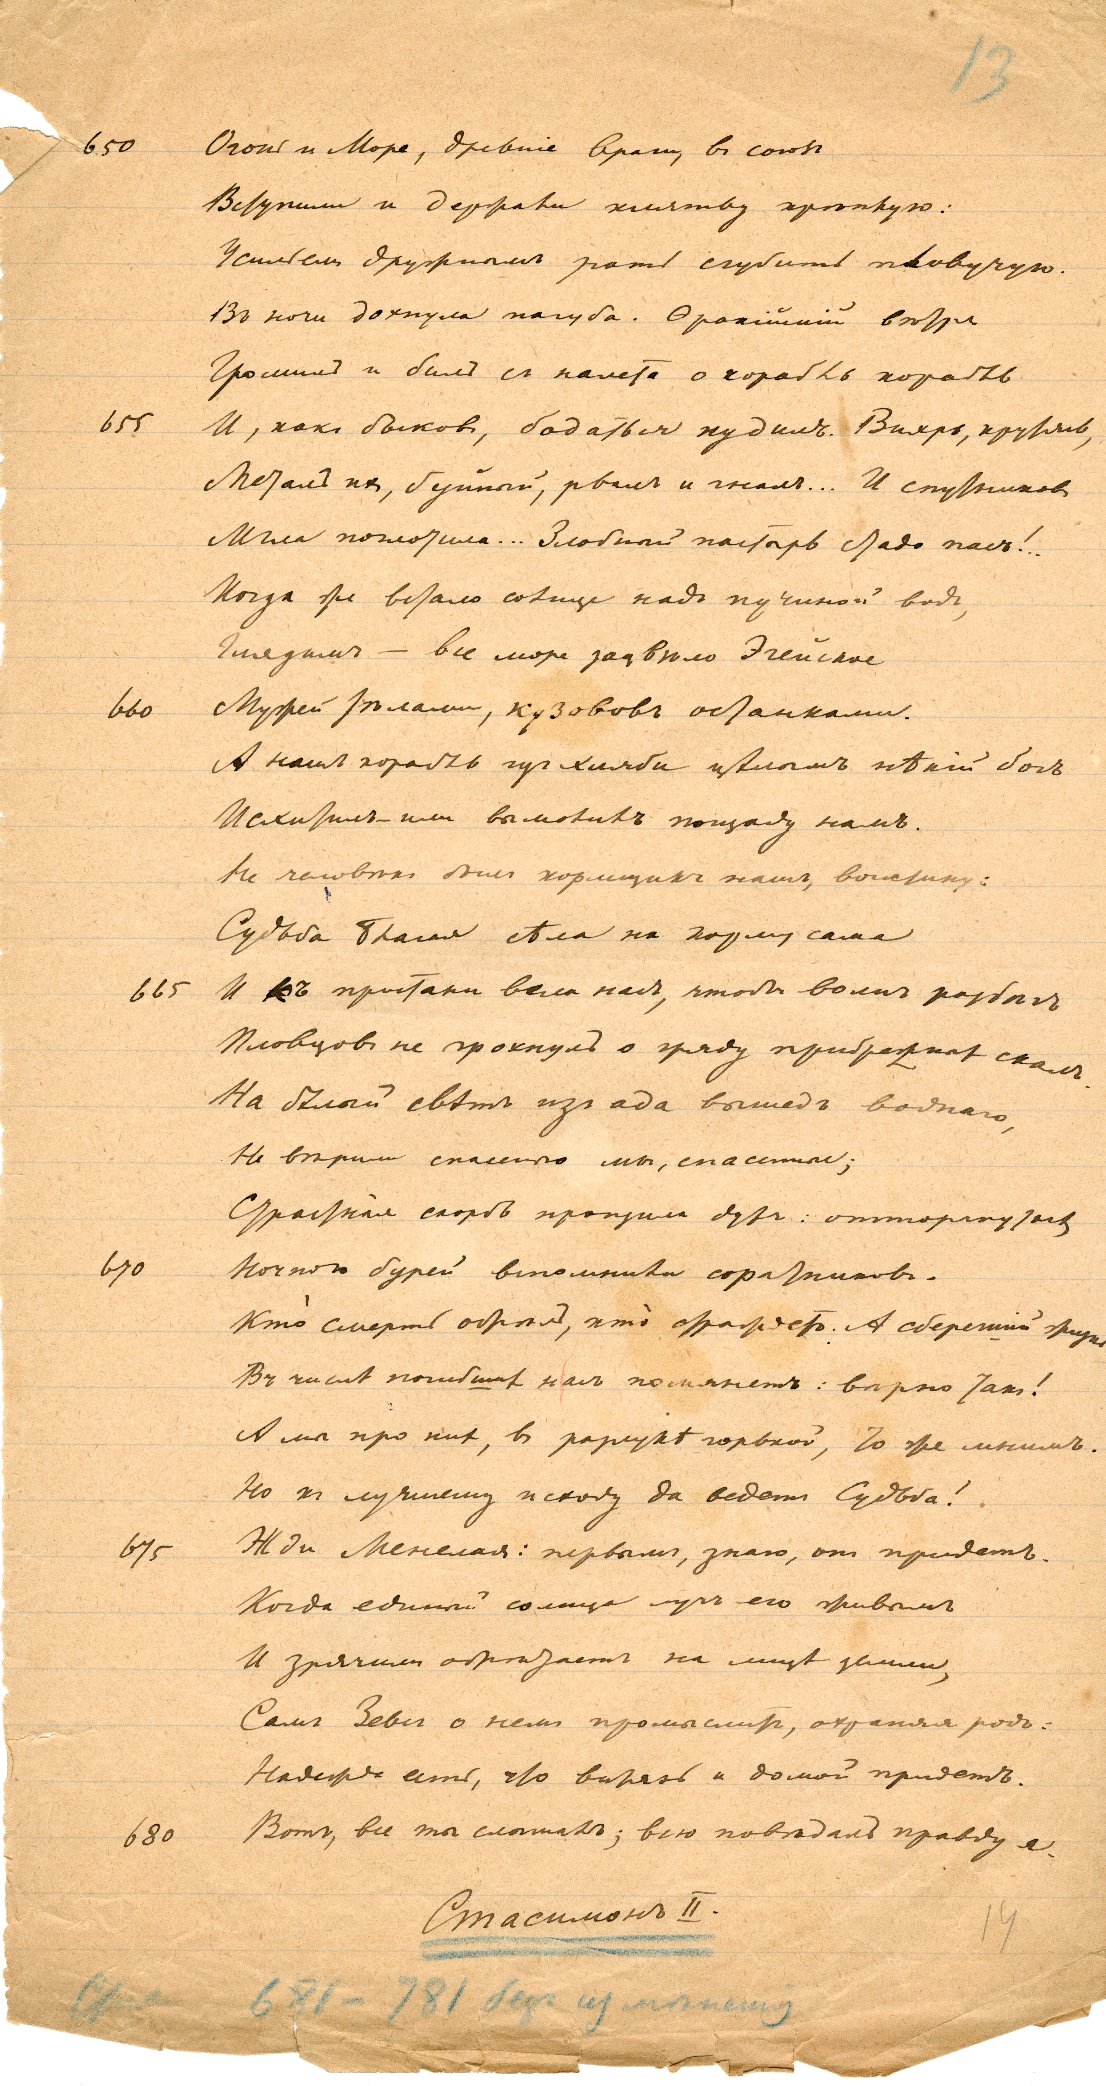 13
650 Огонь и Море, древніе враги, въ союзъ
Вступили и держали клятву крѣпкую:
Усильемъ дружнымъ рать сгубить пловучую.
Въ ночи дохнула пагуба. Ѳракійскій вѣтръ
Громилъ и билъ съ налета о корабль корабль
655 И, какъ быковъ, бодаться нудилъ. Вихрь, крутясь,
Металъ ихъ, буйный, рвалъ и гналъ... И спутниковъ
Мгла поглотила... Злобный пастырь стадо пасъ!..
Когда же встало солнце надъ пучиной водъ,
Глядимъ – все море зацвѣло Эгейское
660 Мужей тѣлами, кузововъ останками.
А нашъ корабль изъ хляби цѣлымъ нѣкій богъ
Исхитилъ – или вымолилъ пощаду намъ.
Не человѣкъ былъ кормщикъ нашъ, воистину:
Судьба благая сѣла на корму сама
665 И къ пристани вела насъ, чтобъ волнъ разбѣгъ
Пловцовъ не грохнулъ о гряду прибрежныхъ скалъ.
На бѣлый свѣтъ изъ ада вышедъ воднаго,
Не вѣрили спасенью мы, спасенные;
Страстная скорбь пронзила духъ: отторгнутыхъ
670 Ночною бурей вспомнили соратниковъ.
Кто̀ смерть обрѣлъ, кто̀ страждетъ. А сберегшій жизнь
Въ числѣ погибшихъ насъ помянетъ: вѣрно такъ!
А мы про нихъ, въ разлукѣ горькой, то же мнимъ.
Но къ лучшему исходу да ведетъ Судьба!
675 Жди Менелая: первымъ, знаю, онъ придетъ.
Когда единый солнца лучъ его живымъ
И зрячимъ обрѣтаетъ на лицѣ земли,
Самъ Зевсъ о немъ промыслитъ, охраняя родъ:
Надежда есть, что витязь и домой придетъ.
680 Вотъ, все ты слышалъ; всю повѣдалъ правду я.
Стасимонъ II.
14
681 – 781 безъ измѣненій